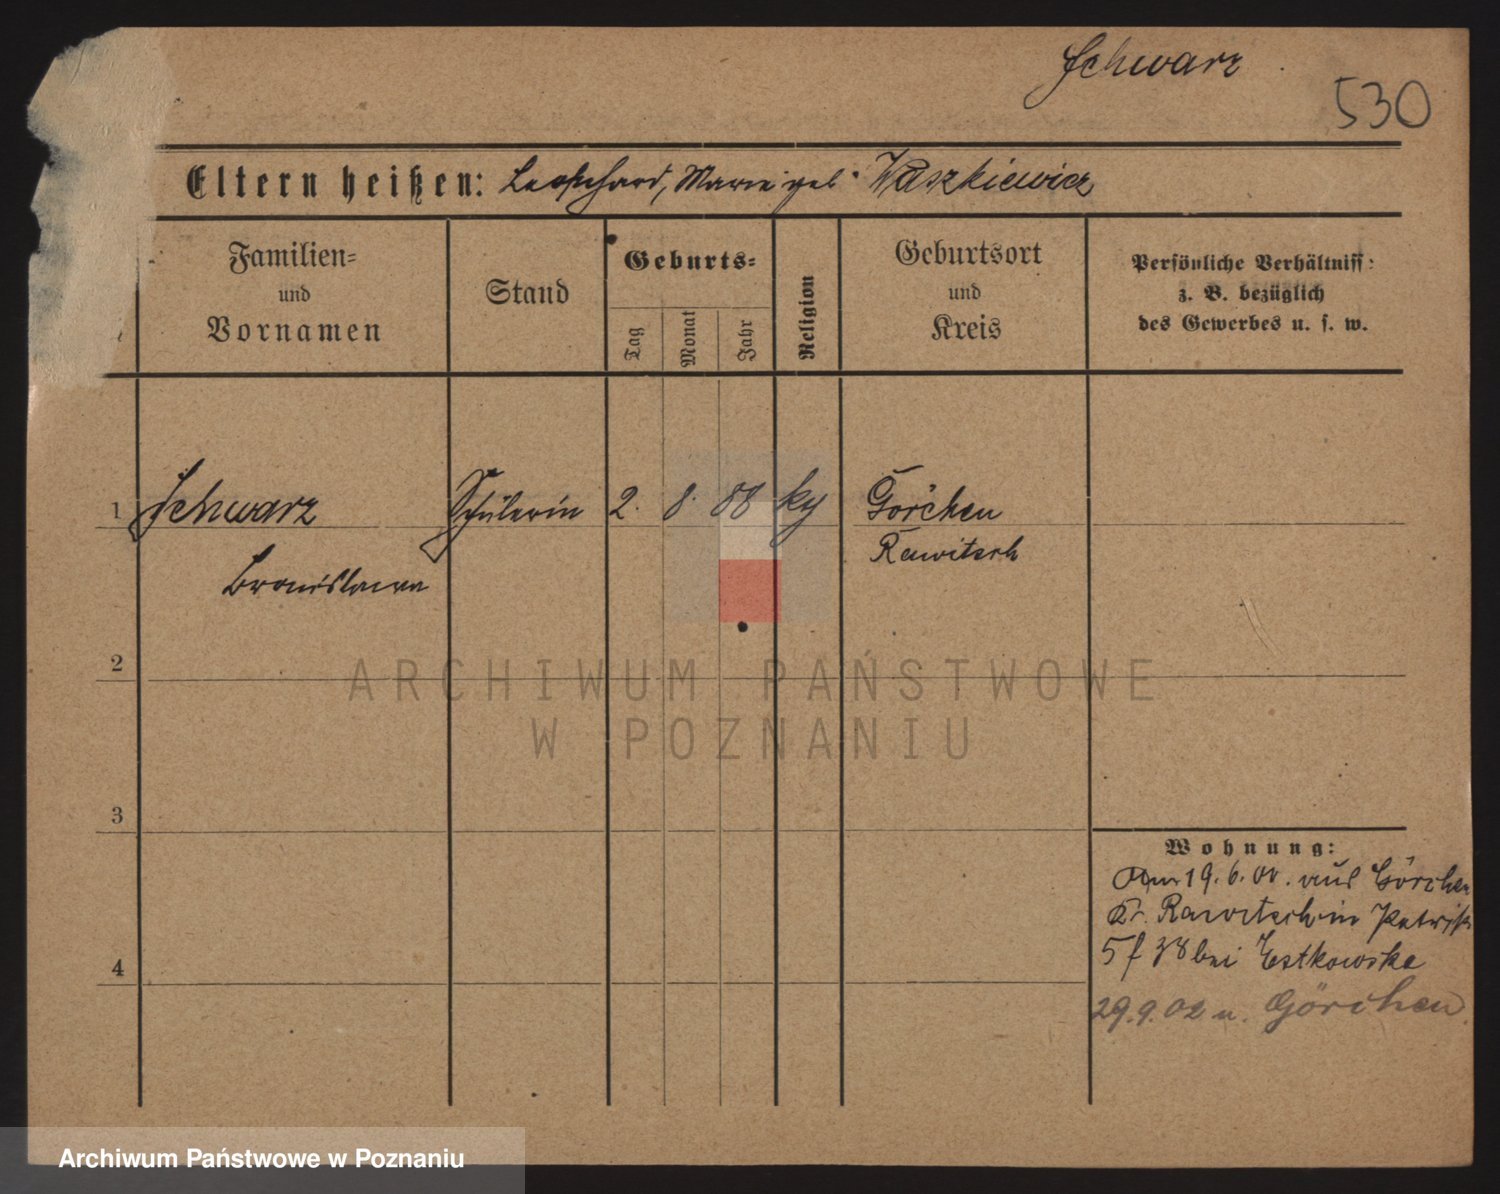 Schwarz
530
Eltern heißen: Leonhard, Marie geb. Waszkiewicz
Familien=
und
Vornamen
Stand
Geburts=
Tag
Monat
Jahr
Religion
Geburtsort
und
Kreis
Persönliche Verhältniss:
z. B. bezüglich
des Gewerbes u. s. w.
1 Schwarz Schülerin 2. 8. 88 kg Görchen
Bronislawa Rawitsch
2
ARCHIWUM PAŃSTWOWE
W POZNANIU
3
4
Wohnung:
19.6.00. aus Görchen
Kr. Rawitsch in
5 f 38 bei Estkowska
29.9.02 n. Görchen
Archiwum Państwowe w Poznaniu